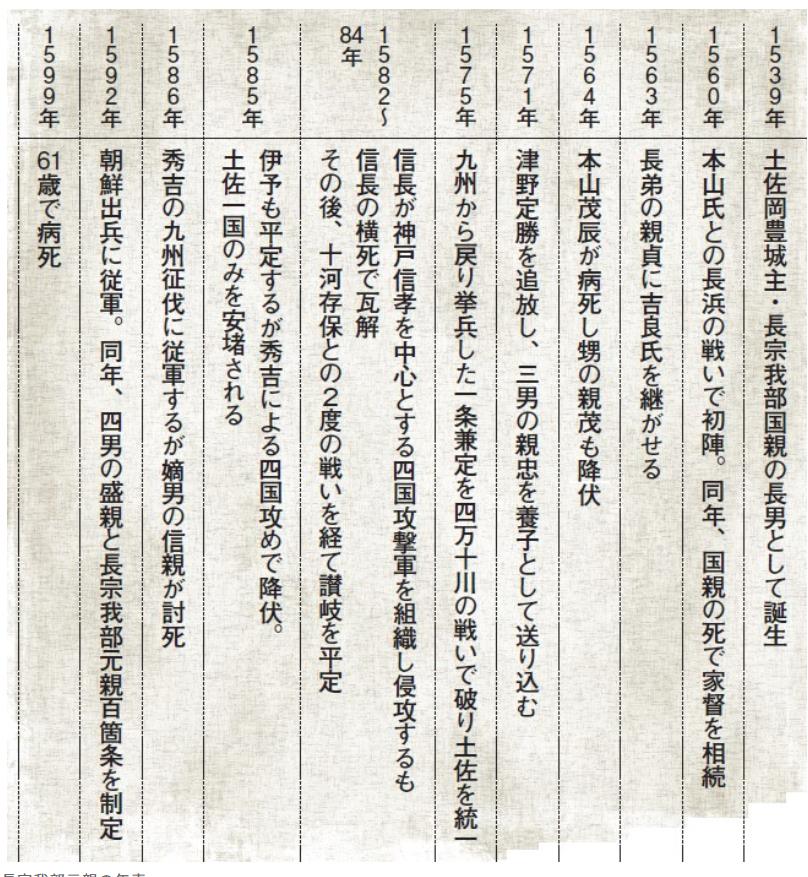 1539年
土佐岡豊城主・長宗我部国親の長男として誕生
1560年
本山氏との長浜の戦いで初陣。同年、国親の死で家督を相続
1563年
長弟の親貞に吉良氏を継がせる
1564年
本山茂辰が病死し甥の親茂も降伏
1571年
津野定勝を追放し、三男の親忠を養子として送り込む
1575年
九州から戻り挙兵した一条兼定を四万十川の戦いで破り土佐を統一
1582〜
84年
信長が神戸信孝を中心とする四国攻撃軍を組織し侵攻するも
信長の横死で瓦解
その後、十河存保との2度の戦いを経て讃岐を平定
1585年
伊予も平定するが秀吉による四国攻めで降伏。
土佐一国のみを安堵される
1586年
秀吉の九州征伐に従軍するが嫡男の信親が討死
1592年
朝鮮出兵に従軍。同年、四男の盛親と長宗我部元親百箇条を制定
1599年
61歳で病死